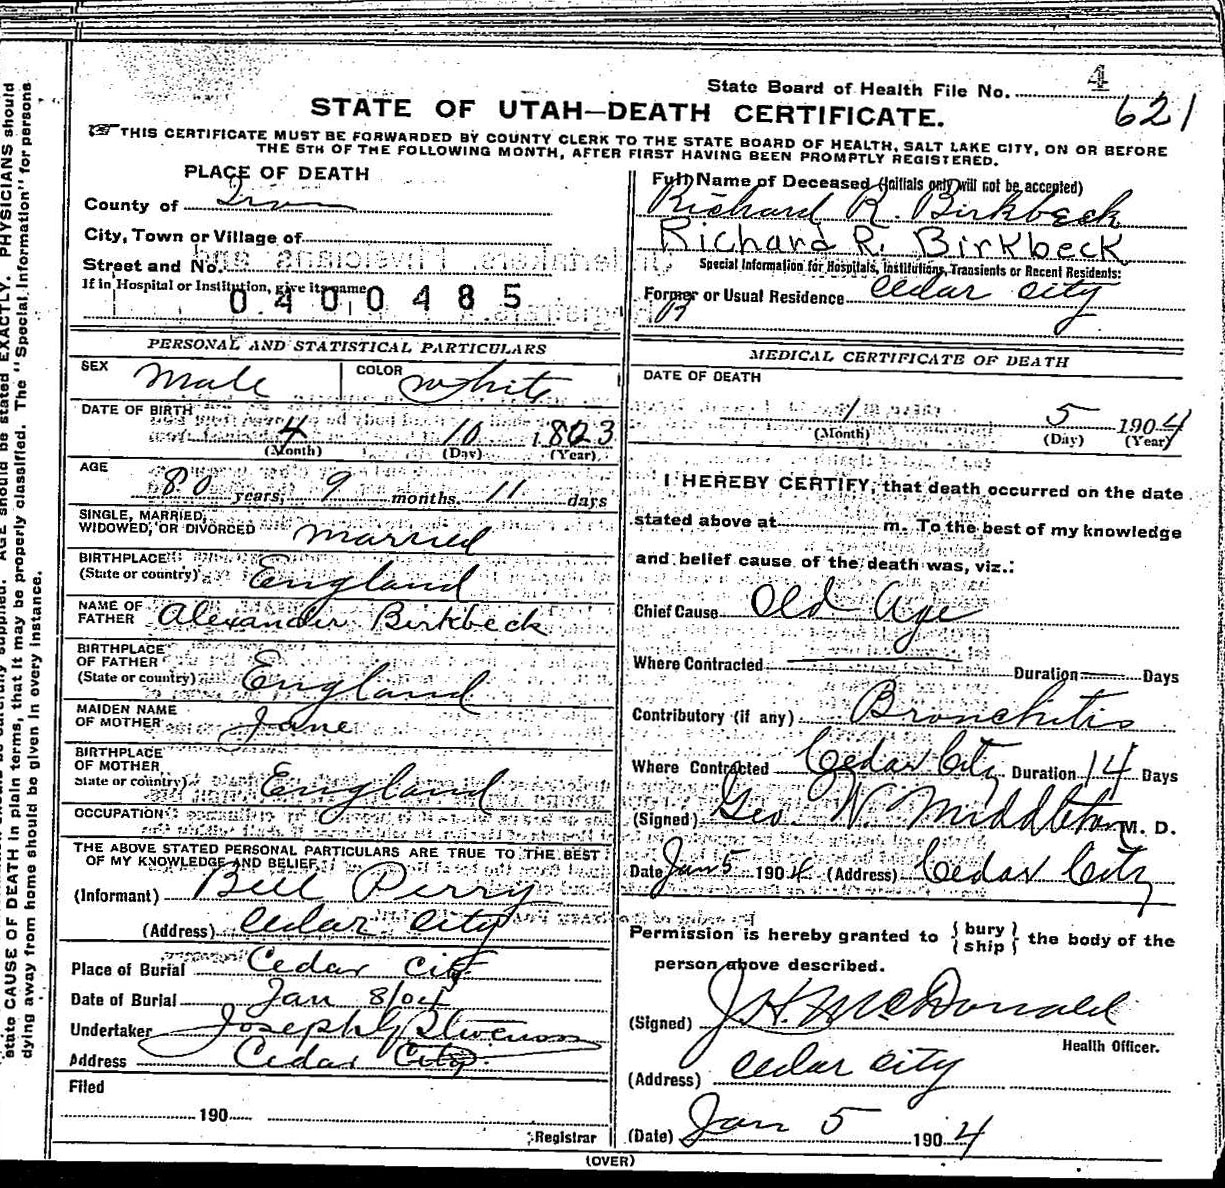 State Board of Health File No. 4
621
STATE OF UTAH—DEATH CERTIFICATE.
THIS CERTIFICATE MUST BE FORWARDED BY COUNTY CLERK TO THE STATE BOARD OF HEALTH, SALT LAKE CITY, ON OR BEFORE
THE 5TH OF THE FOLLOWING MONTH, AFTER FIRST HAVING BEEN PROMPTLY REGISTERED.
PLACE OF DEATH
County of Iron
City, Town or Village of
Street and No.
If in Hospital or Institution, give its name
0400485
Full Name of Deceased (Initials only will not be accepted)
Richard R. Birkbeck
Richard R. Birkbeck
Special Information for Hospitals, Institutions, Transients or Recent Residents:
Former or Usual Residence Cedar City
PERSONAL AND STATISTICAL PARTICULARS
SEX Male COLOR White
DATE OF BIRTH
4 10 1823
(Month) (Day) (Year)
AGE
80 years, 9 months. 11 days
SINGLE, MARRIED,
WIDOWED, OR DIVORCED Married
BIRTHPLACE
(State or country) England
NAME OF
FATHER Alexander Birkbeck
BIRTHPLACE
OF FATHER
(State or country) England
MAIDEN NAME
OF MOTHER Jane
BIRTHPLACE
OF MOTHER
State or country) England
OCCUPATION
THE ABOVE STATED PERSONAL PARTICULARS ARE TRUE TO THE BEST
OF MY KNOWLEDGE AND BELIEF
(Informant) Bell Perry
(Address) Cedar City
Place of Burial Cedar City
Date of Burial Jan 8/04
Undertaker Joseph G Stevenson
Address Cedar City
Filed
190
Registrar
MEDICAL CERTIFICATE OF DEATH
DATE OF DEATH
1 5 1904
(Month) (Day) (Year)
I HEREBY CERTIFY, that death occurred on the date
stated above at m. To the best of my knowledge
and belief cause of the death was, viz.:
Chief Cause Old Age
Where Contracted Duration Days
Contributory (if any) Bronchitis
Where Contracted Cedar City Duration 14 Days
(Signed) Geo. W. Middleton M. D.
Date Jan 5 1904 (Address) Cedar City
Permission is hereby granted to {bury
ship} the body of the
person above described.
(Signed) J. H. McDonald
Health Officer.
(Address) Cedar City
(Date) Jan 5 1904
(OVER)
state CAUSE OF DEATH in plain terms, that it may be properly classified. The "Special Information" for persons
dying away from home should be given in every instance.